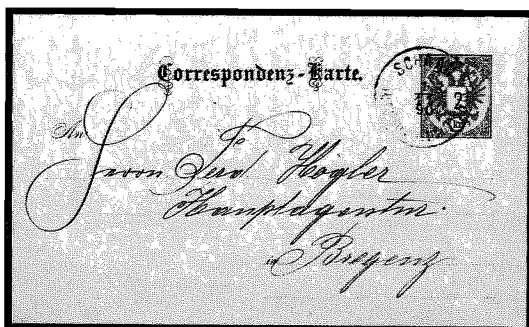 Correspondenz-Karte.
SCH
2
90
An
Herrn Ferd Högler
Hauptagentur.
in Bregenz